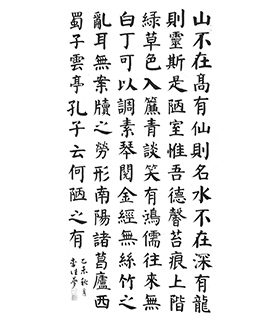 山不在髙有仙則名水不在深有龍
則靈斯是陋室惟吾德馨苔痕上階
綠草色入簾青談笑有鴻儒往來無
白丁可以調素琴閱金經無絲竹之
亂耳無案牘之勞形南陽諸葛廬西
蜀子雲亭孔子云何陋之有
乙未秋月